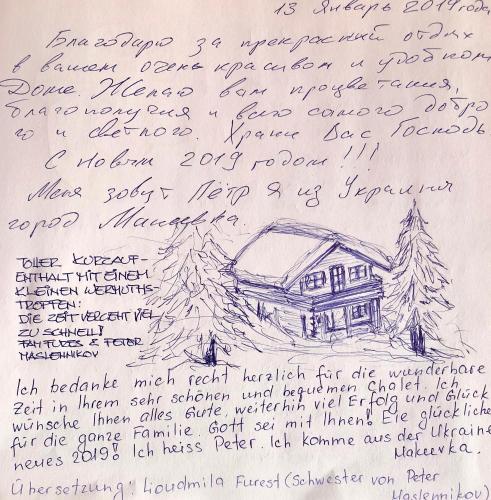 13 Январь 2019 года
Благодарю за прекрасный отдых
в вашем очень красивом и удобном
Доме. Желаю вам процветания,
благополучия и всего самого добро
го и светлого. Храни Вас Господь
С Новым 2019 годом!!!
Меня зовут Пётр Я из Украины
город Макеевка.
TOLLER KURZAUF-
ENTHALT MIT EINEM
KLEINEN WERMUTHS-
TROPFEN:
DIE ZEIT VERGEHT VIEL
ZU SCHNELL!
FAM FURES & PETER
MASLENNIKOV
Ich bedanke mich recht herzlich für die wunderbare
Zeit in Ihrem sehr schönen und bequemen Chalet. Ich
wünsche Ihnen alles Gute, weiterhin viel Erfolg und Glück
für die ganze Familie. Gott sei mit Ihnen! Ein glückliches
neues 2019! Ich heiss Peter. Ich komme aus der Ukraine
Makeevka.
Übersetzung: Lioudmila Furest (Schwester von Peter
Maslennikov)